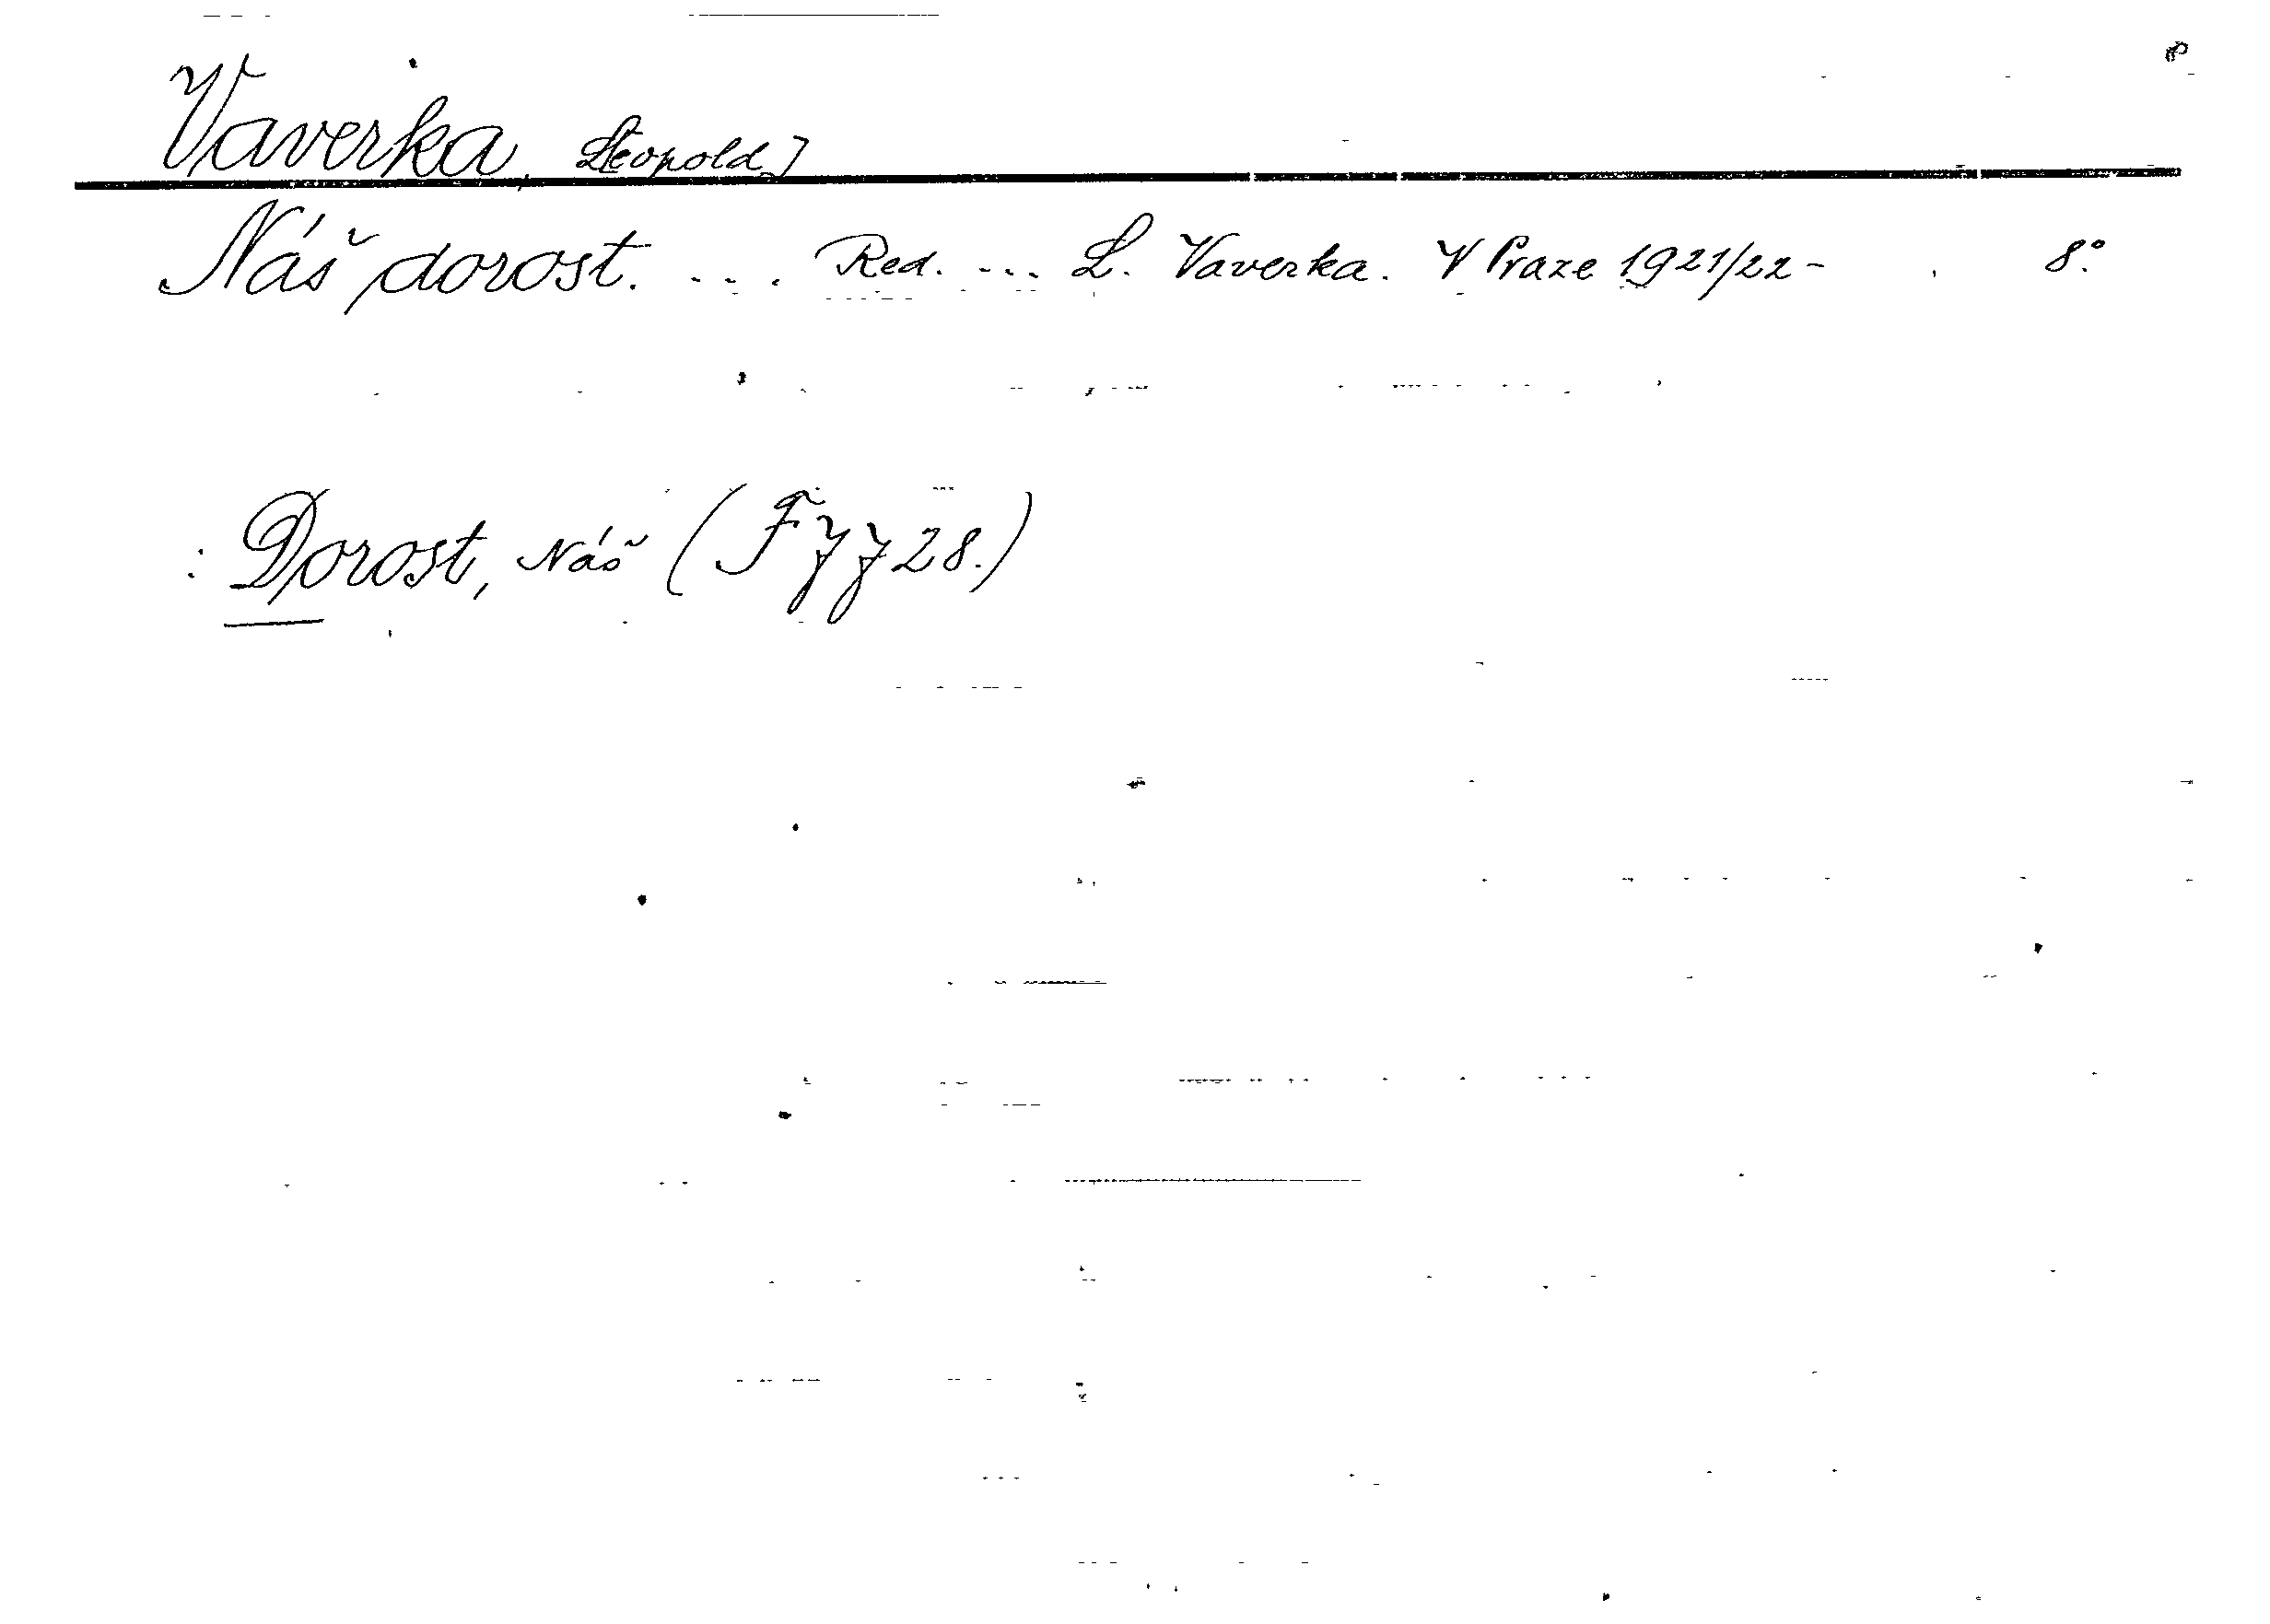 Vaverka, Leopold]
Náš dorost. ... Red. ... L. Vaverka. V Praze 1921/22- . 8.°
: Dorost, Náš (F 77 28.)